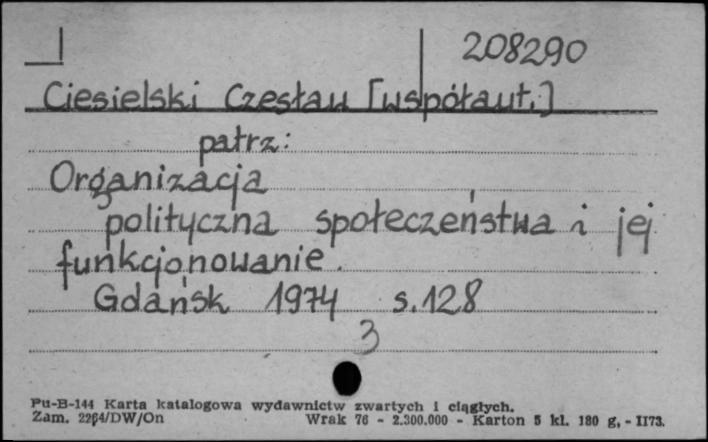 208290
Ciesielski Czesław [współaut.]
patrz:
Organizacja
polityczna społeczeństwa i jej
funkcjonowanie.
Gdańsk 1974 s.128
3
Pu-B-144 Karta katalogowa wydawnictw zwartych i ciągłych.
Zam. 2264/DW/On Wrak 76 - 2.300.000 - Karton 5 kl. 180 g, - II73.